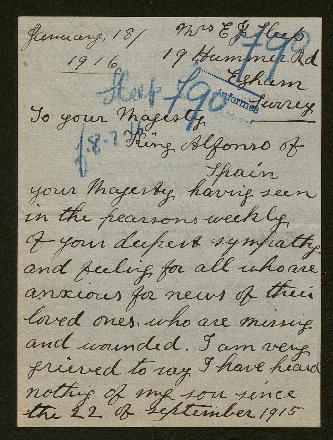 January, 18/
1916
Mrs E J Sleep
19 Hummer Rd
Egham
Surrey
799
Sleep 790
8-2-16
To your Majesty
King Alfonso of
Spain
your Majesty having seen
in the pearsons weekly
of your deepest sympathy
and feeling for all who are
anxious for news of their
loved ones who are missing
and wounded. I am very
grieved to say I have heard
nothig of my son since
the 22 of September 1915